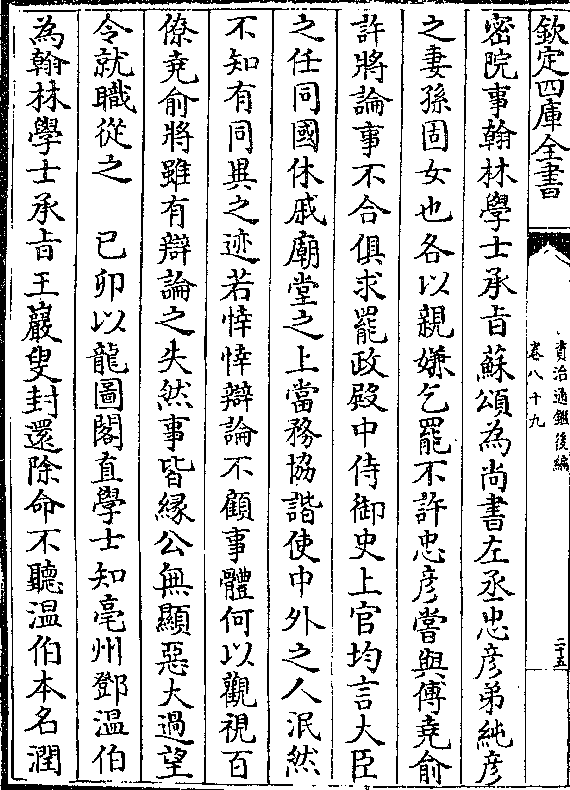 欽定四庫全書
資治通鑑後編
卷八十九
二十五
密院事翰林學士承㫖蘇頌為尚書左丞忠彦弟純彦
之妻孫固女也各以親嫌乞罷不許忠彦嘗與傅堯俞
許將論事不合俱求罷政殿中侍御史上官均言大臣
之任同國休戚廟堂之上當務協諧使中外之人泯然
不知有同異之迹若悻悻辯論不顧事體何以觀視百
僚堯俞將雖有辯論之失然事皆緣公無顯惡大過望
令就職從之　己卯以龍圖閣直學士知亳州鄧温伯
為翰林學士承㫖王巖叟封還除命不聽温伯本名潤